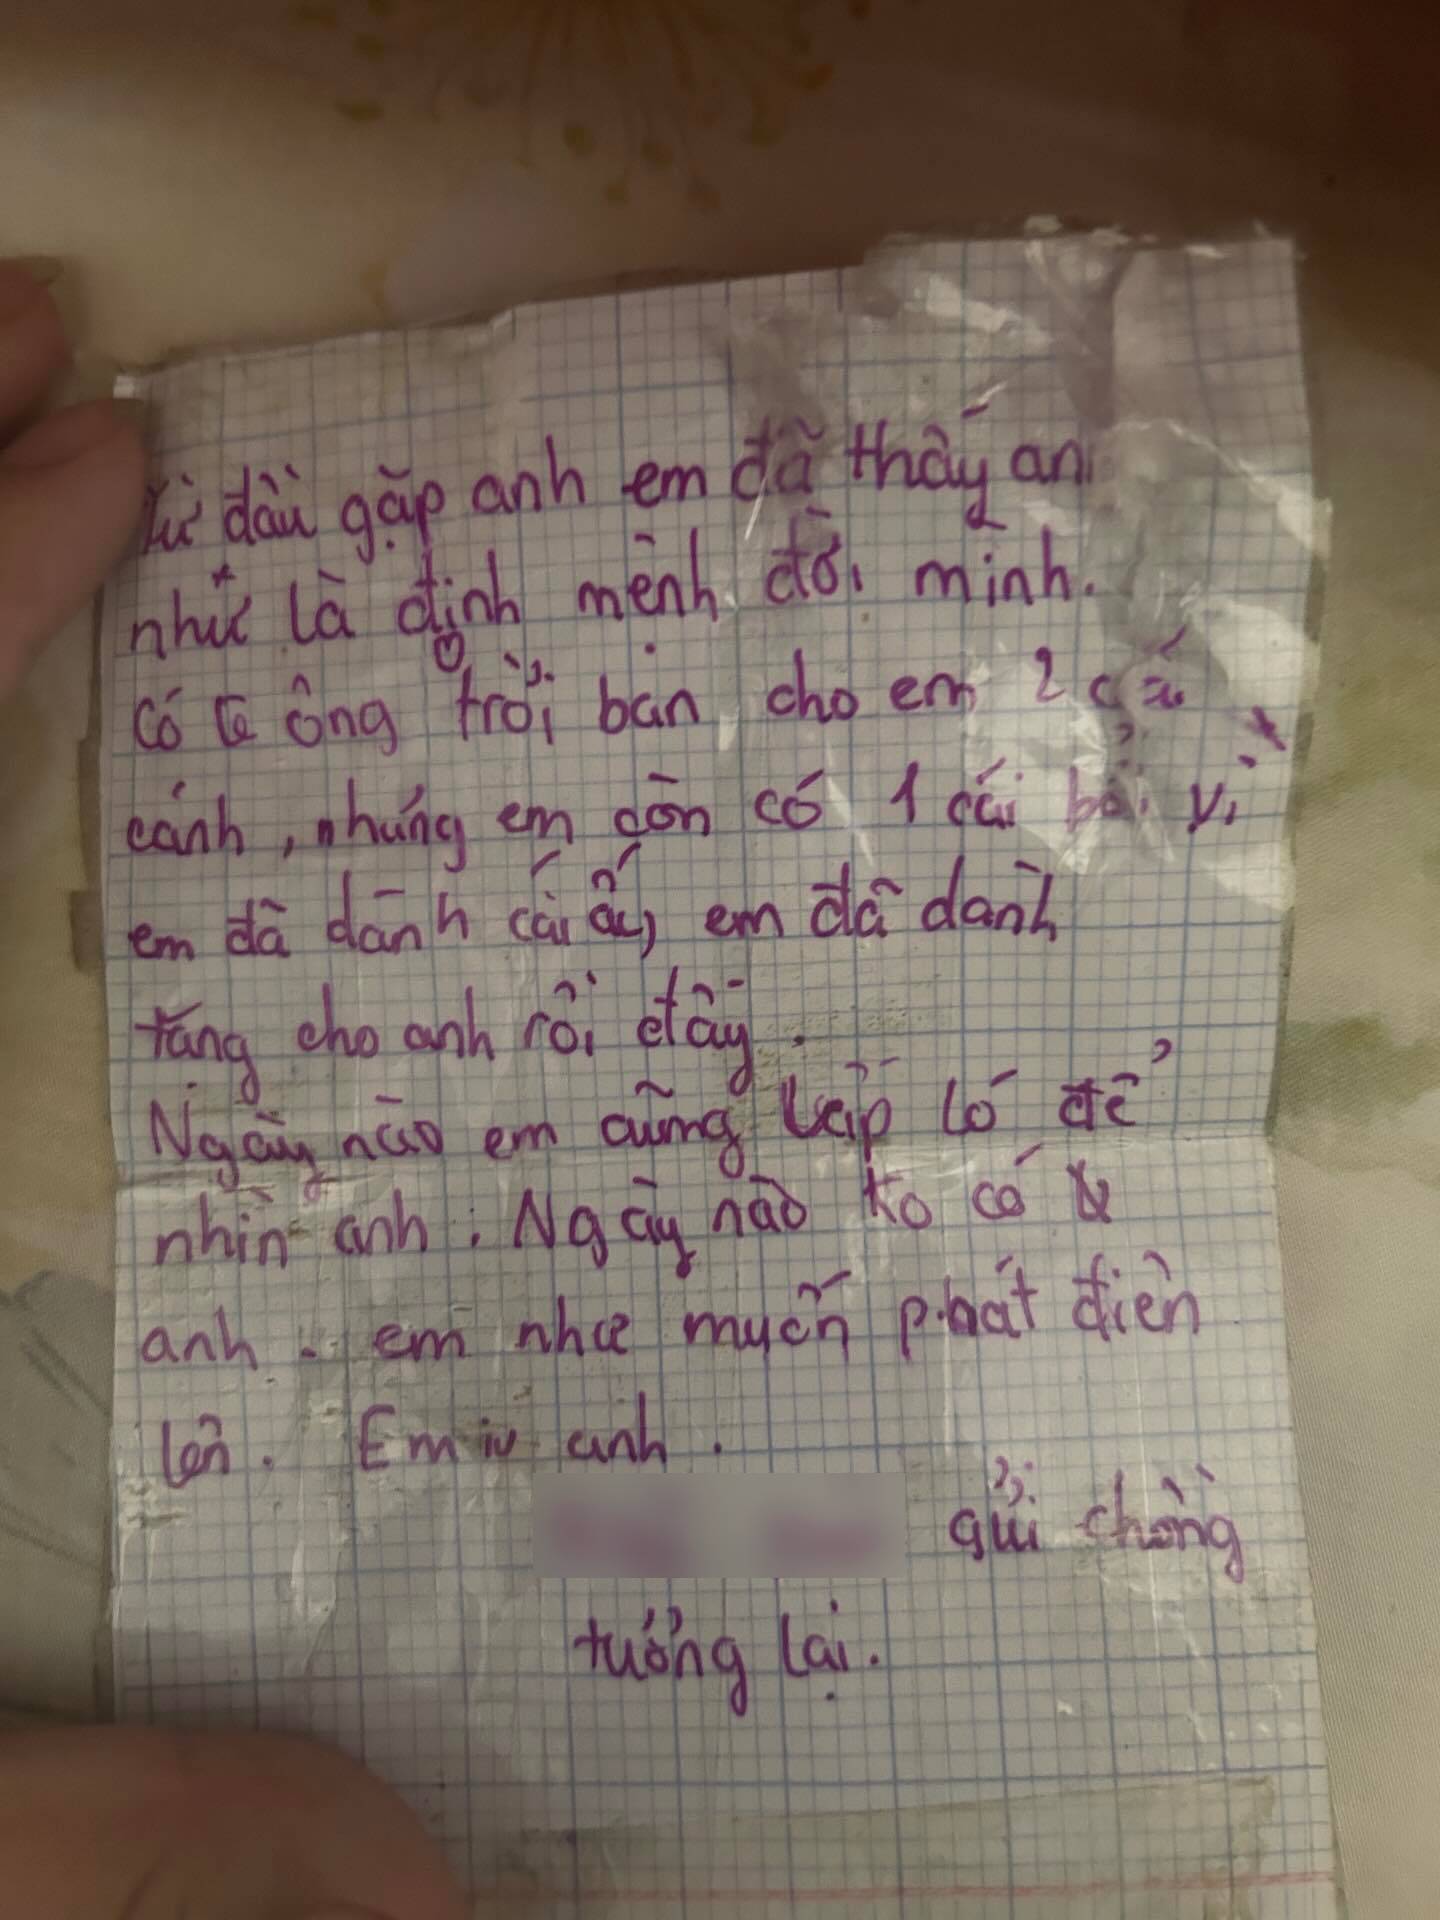 Từ đầu gặp anh em đã thấy an
như là định mệnh đời mình.
Có lẽ ông trời ban cho em 2
cánh, nhưng em còn có 1 cái bởi vì
em đã dành cái ấy, em đã dành
tặng cho anh rồi đấy.
Ngày nào em cũng lấp ló để
nhìn anh. Ngày nào ko có
anh. em như muốn phát điên
lên. Em iu anh.
gửi chồng
tương lai.